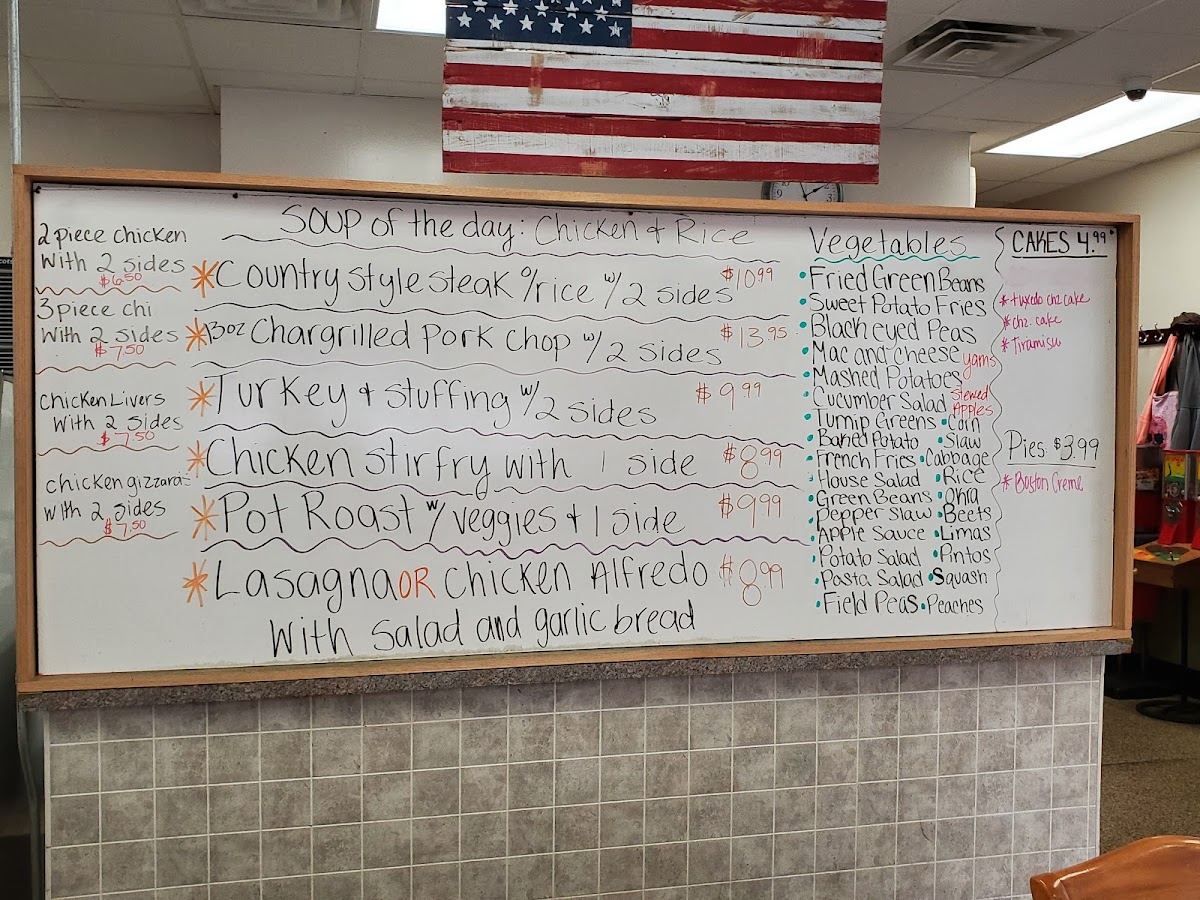 2 piece chicken
With 2 sides
$6.50
3 piece chi
With 2 sides
$7.50
Chicken Livers
With 2 sides
$7.50
chicken gizzards
with 2 sides
$7.50
Soup of the day: Chicken & Rice
*Country style steak o/rice w/ 2 sides $10.99
*13oz Chargrilled Pork Chop w/ 2 sides $13.95
*Turkey & stuffing w/ 2 sides $9.99
*Chicken stir fry with 1 side $8.99
*Pot Roast w/ veggies & 1 side $9.99
*Lasagna OR Chicken Alfredo $8.99
With salad and garlic bread
Vegetables
•Fried Green Beans
•Sweet Potato Fries
•Black eyed Peas
•Mac and cheese yams
•Mashed Potatoes
•Cucumber Salad Stewed Apples
•Turnip Greens •Corn
•Baked Potato •Slaw
•French Fries •Cabbage
•House Salad •Rice
•Green Beans •Okra
•Pepper Slaw •Beets
•Apple Sauce •Limas
•Potato Salad •Pintos
•Pasta Salad •Squash
•Field Peas •Peaches
CAKES 4.99
*tuxedo chz cake
*chz. cake
*Tiramisu
Pies: $3.99
*Boston Creme